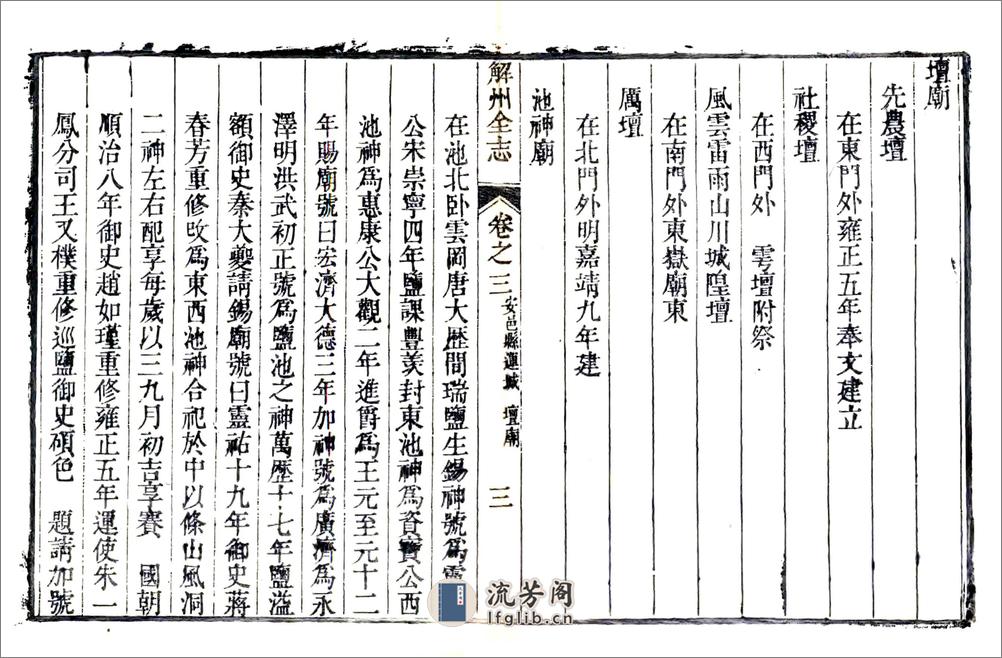 壇廟
先農壇
在東門外雍正五年奉文建立
社稷壇
在西門外 雩壇附祭
風雲雷雨山川城隍壇
在南門外東嶽廟東
厲壇
在北門外明嘉靖九年建
池神廟
解州全志 卷之三 安邑縣運城 壇廟 三
在池北卧雲岡唐大歷間瑞鹽生錫神號爲靈
公宋崇寧四年鹽課豐羨封東池神爲資寶公西
池神爲惠康公大觀二年進爵爲王元至元十二
年賜廟號曰宏濟大德三年加神號爲廣濟爲永
澤明洪武初正號爲鹽池之神萬歷十七年鹽溢
額御史秦大夔請錫廟號曰靈祐十九年御史蔣
春芳重修改爲東西池神合祀於中以條山風洞
二神左右配享每歲以三九月初吉享賽 國朝
順治八年御史趙如瑾重修雍正五年運使朱一
鳳分司王又樸重修巡鹽御史碩色 題請加號
流芳阁
lfglib.cn